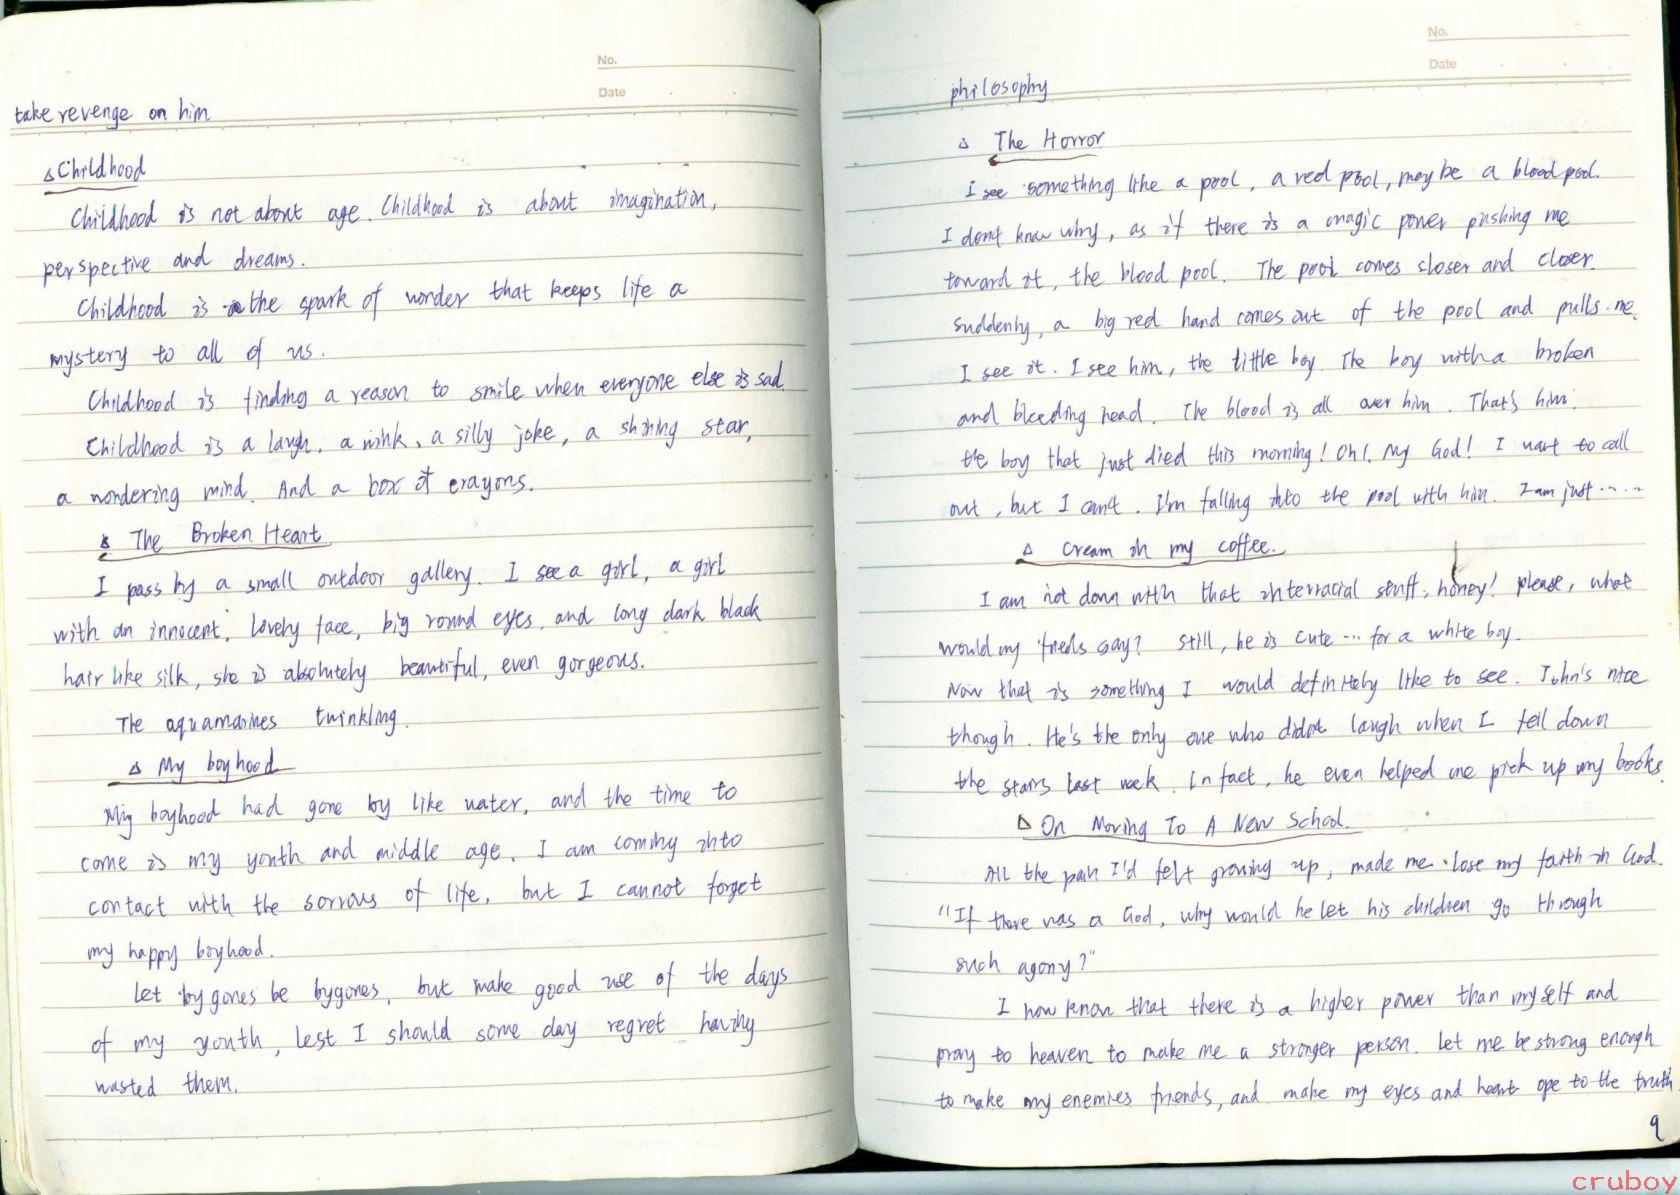 No.
Date
take revenge on him
△ Childhood
Childhood is not about age. Childhood is about imagination,
perspective and dreams.
Childhood is the spark of wonder that keeps life a
mystery to all of us.
Childhood is finding a reason to smile when everyone else is sad.
Childhood is a laugh, a wink, a silly joke, a shining star,
a wondering mind. And a box of crayons.
△ The Broken Heart
I pass by a small outdoor gallery. I see a girl, a girl
with an innocent, lovely face, big round eyes, and long dark black
hair like silk, she is absolutely beautiful, even gorgeous.
The aquamarines twinkling.
△ My boyhood
My boyhood had gone by like water, and the time to
come is my youth and middle age. I am coming into
contact with the sorrows of life, but I cannot forget
my happy boyhood.
Let bygones be bygones, but make good use of the days
of my youth, lest I should some day regret having
wasted them.
No.
Date
philosophy
△ The Horror
I see something like a pool, a red pool, maybe a blood pool.
I don't know why, as if there is a magic power pushing me
toward it, the blood pool. The pool comes closer and closer.
suddenly, a big red hand comes out of the pool and pulls me.
I see it. I see him, the little boy. The boy with a broken
and bleeding head. The blood is all over him. That's him.
the boy that just died this morning! Oh!, My God! I want to call
out, but I can't. I'm falling into the pool with him. I am just ......
△ Cream in my coffee.
I am not down with that interracial stuff, honey! please, what
would my frieds say? Still, he is cute ... for a white boy.
Now that is something I would definitely like to see. John's nice
though. He's the only one who didn't laugh when I fell down
the stairs last week. In fact, he even helped me pick up my books.
△ On Moving To A New School.
All the pain I'd felt growing up, made me lose my faith in God.
"If there was a God, why would he let his children go through
such agony?"
I now know that there is a higher power than myself and
pray to heaven to make me a stronger person. Let me be strong enough
to make my enemies friends, and make my eyes and heart ope to the truth
9
cruboy